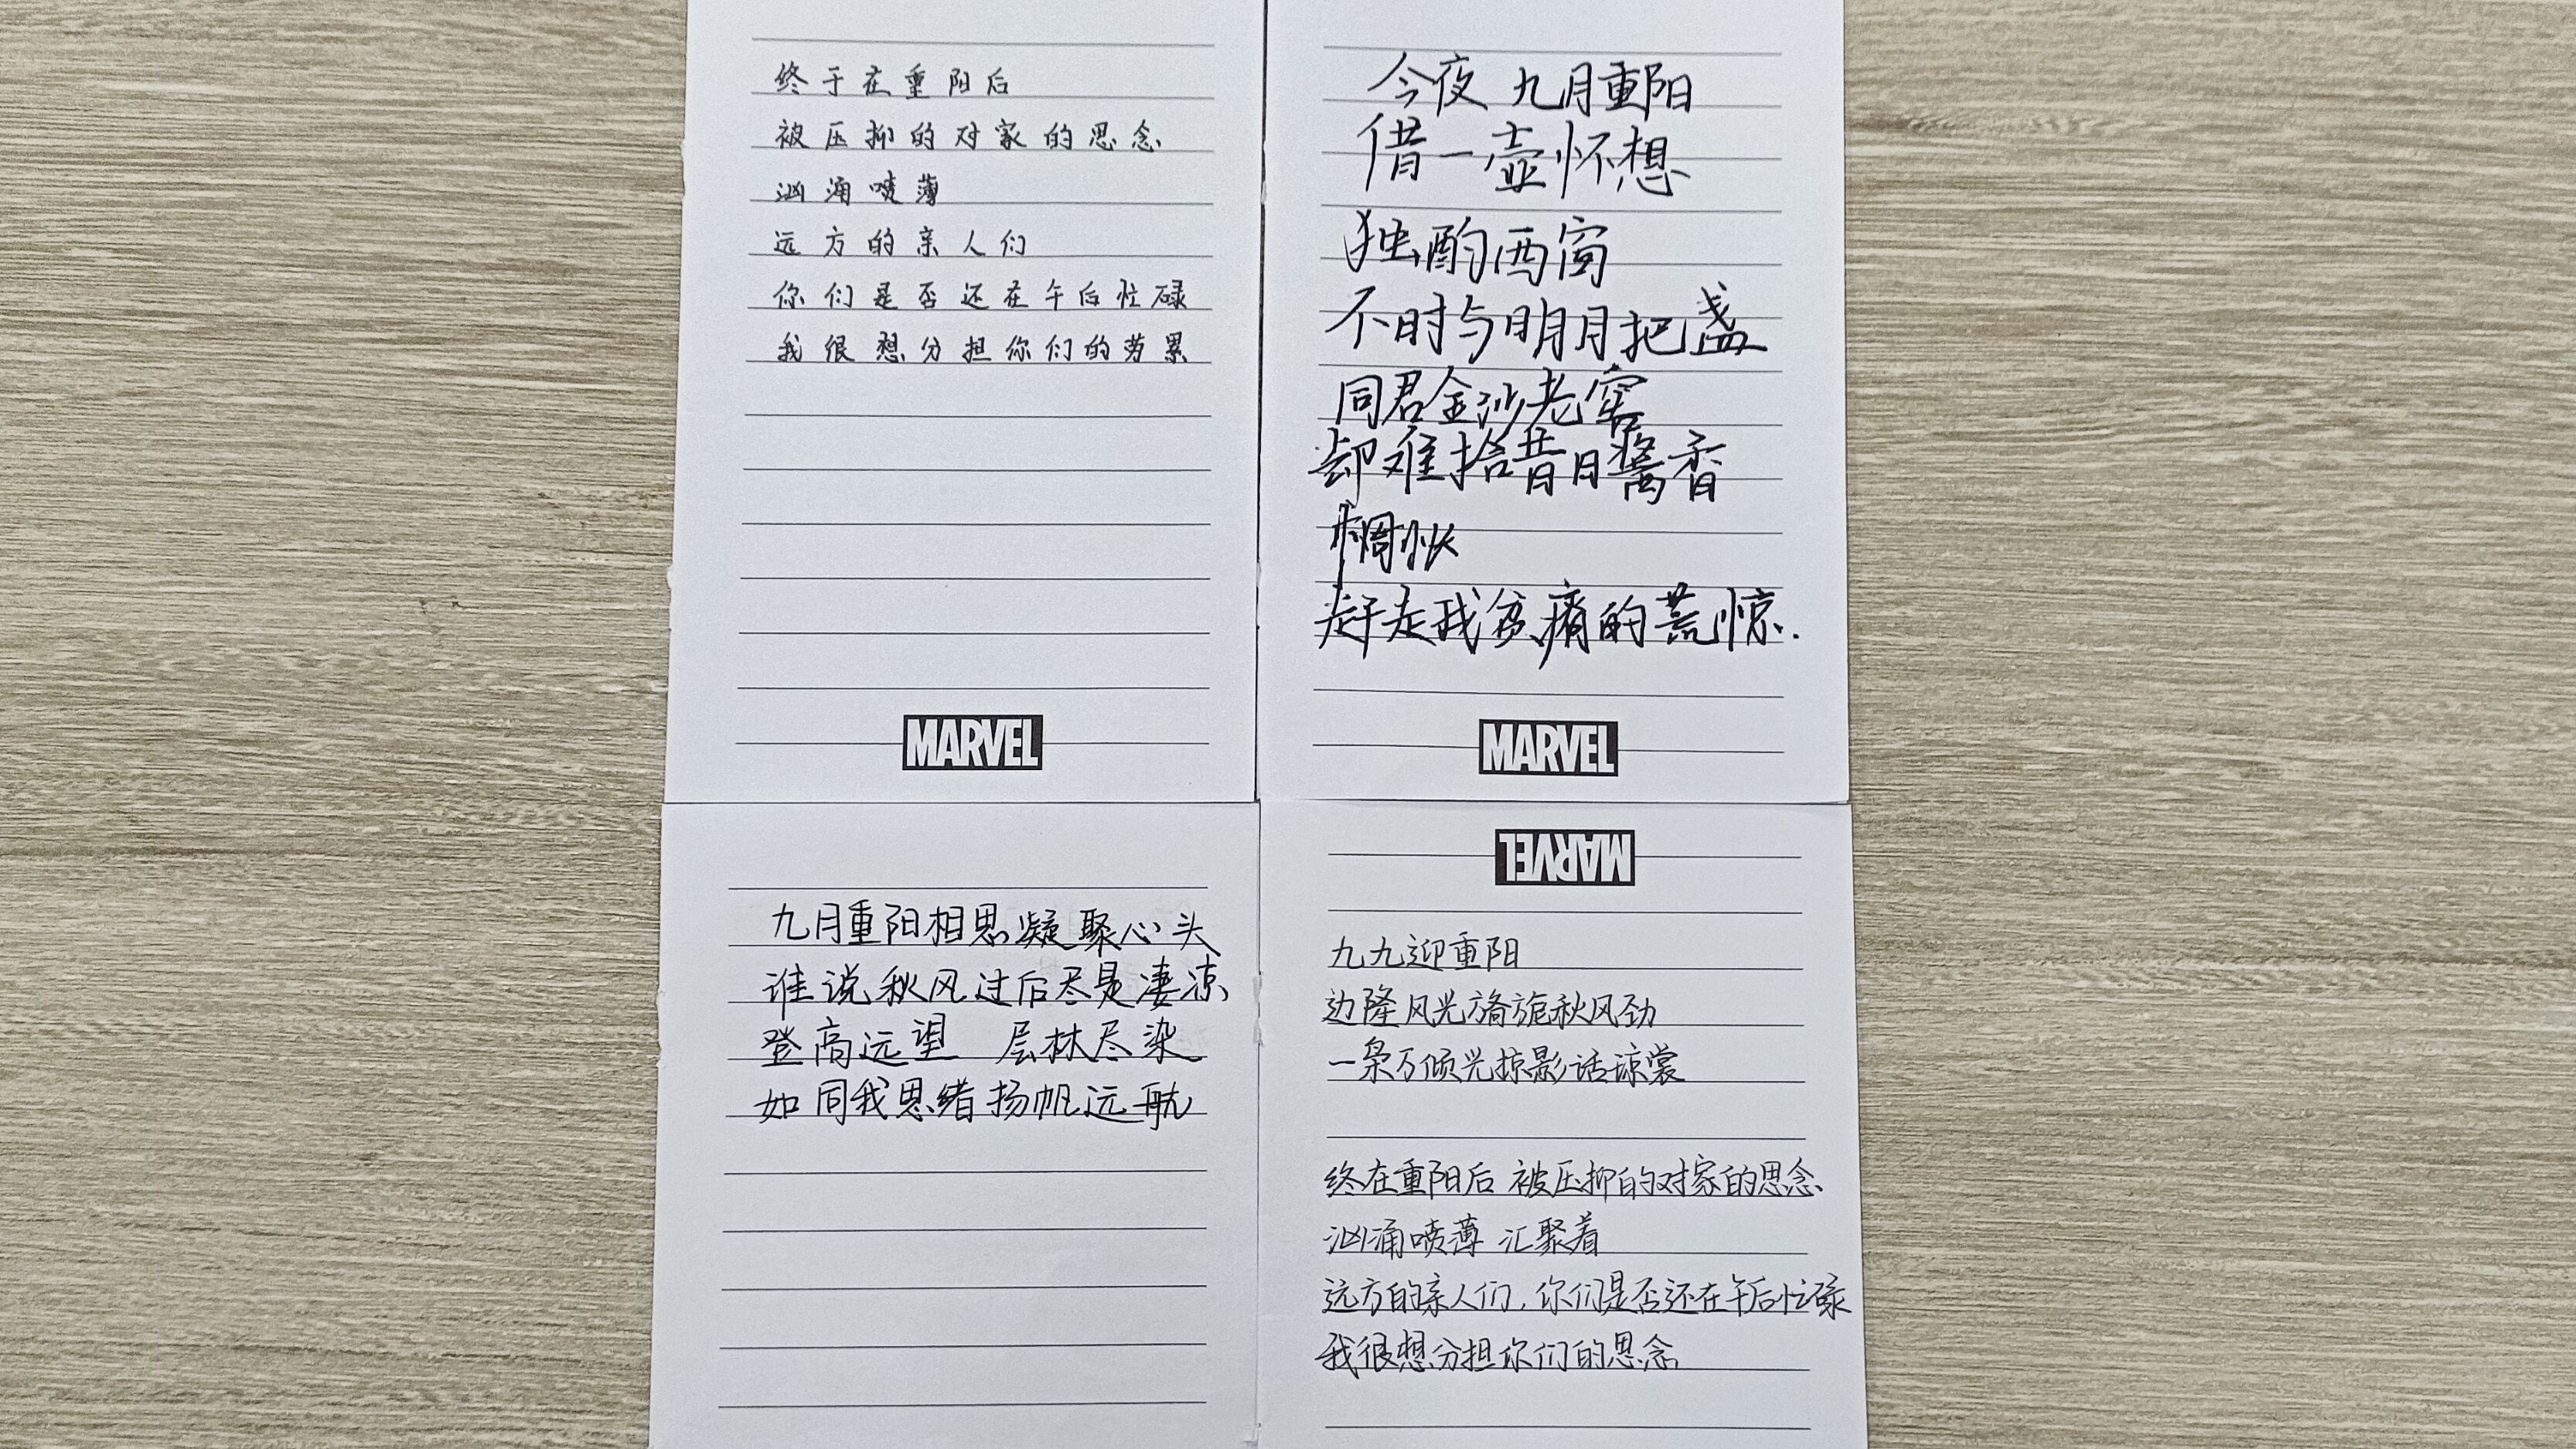 终于在重阳后
被压抑的对家的思念
汹涌喷薄
远方的亲人们
你们是否还在午后忙碌
我很想分担你们的劳累
MARVEL
今夜 九月重阳
借一壶怀想
独酌西窗
不时与明月把盏
同君金沙老窖
却难拾昔日酱香
惆怅
赶走我贫瘠的荒惊.
MARVEL
九月重阳相思凝聚心头
谁说秋风过后尽是凄凉
登高远望 层林尽染
如同我思绪扬帆远航
MARVEL
九九迎重阳
边隆风光旖旎秋风劲
一枭万倾光掠影话谅裳
终在重阳后 被压抑的对家的思念
汹涌喷薄 汇聚着
远方的亲人们,你们是否还在午后忙碌
我很想分担你们的思念